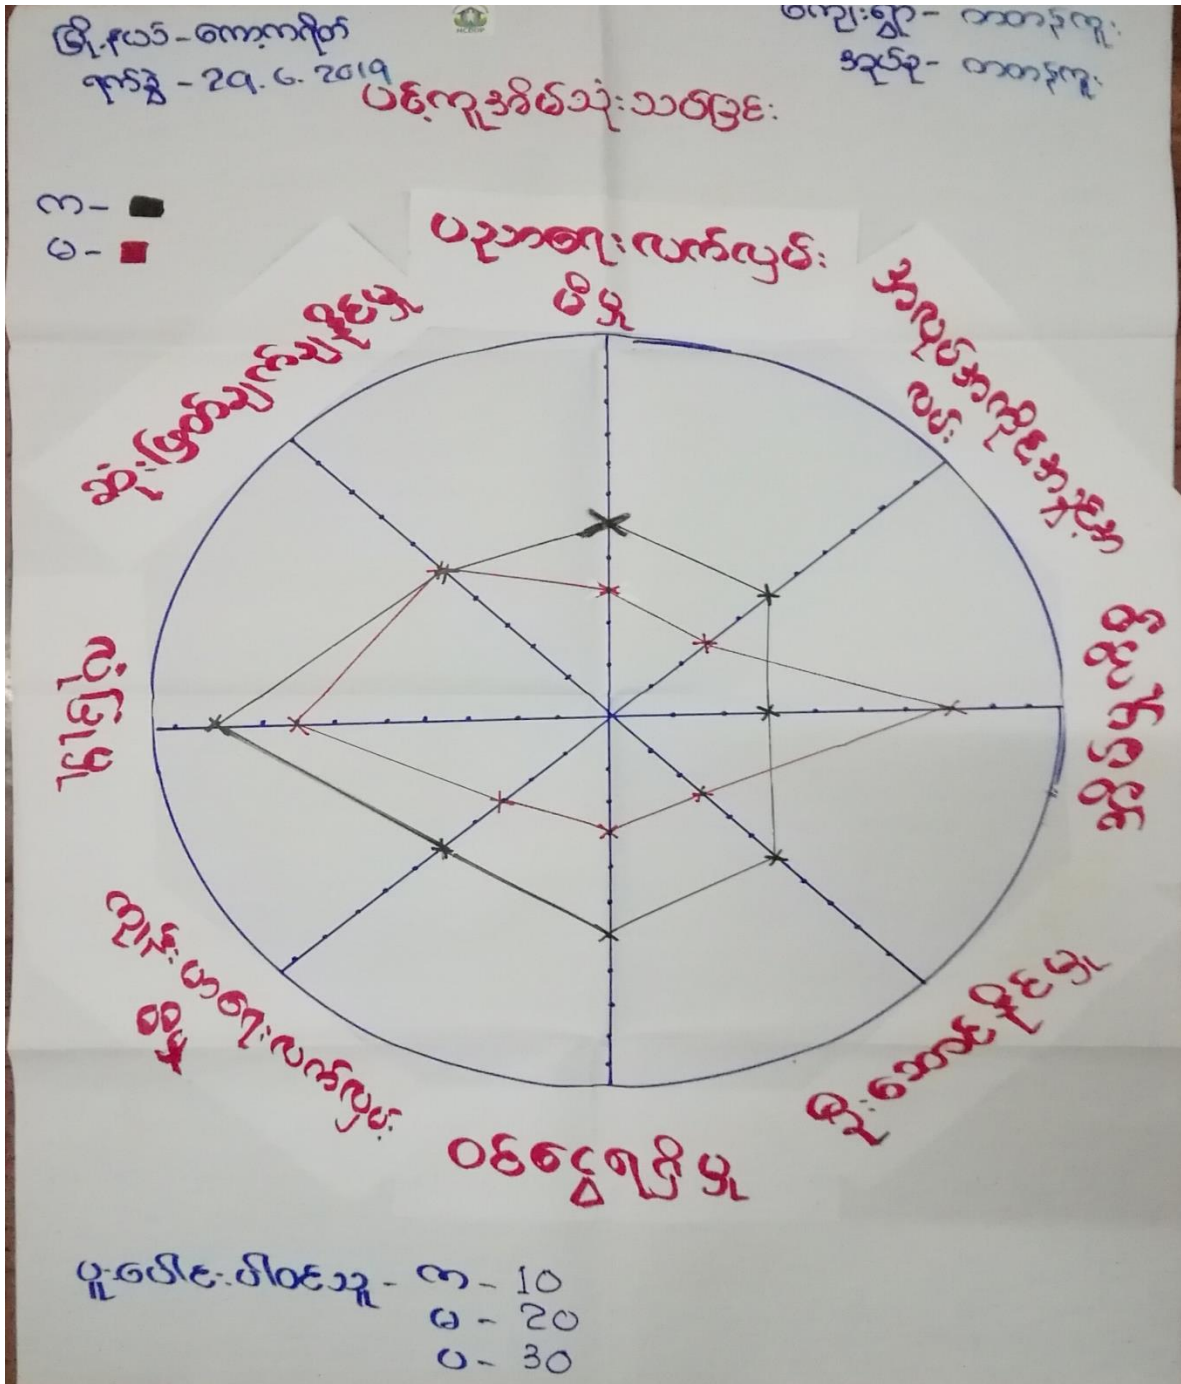 မြို့နယ် - ကော့ကရိတ်
ရက်စွဲ - 29.6.2019
ကျေးရွာ - ကတန်ကူး
အုပ်စု - ကတန်ကူး
ပင့်ကူအိမ်သုံးသပ်ခြင်း
က -
မ -
ပညာရေးလက်လှမ်း
မီမှု
အလုပ်အကိုင်အခွင့်အ
လမ်း
ပိုင်ဆိုင်မှု
ဦးဆောင်နိုင်မှု
ဝင်ငွေရရှိမှု
ကျန်းမာရေးလက်လှမ်း
မီမှု
လှုပ်ရှားမှု
ဆုံးဖြတ်ချက်ချနိုင်မှု
ပူးပေါင်းပါဝင်သူ - က - 10
မ - 20
ပ - 30